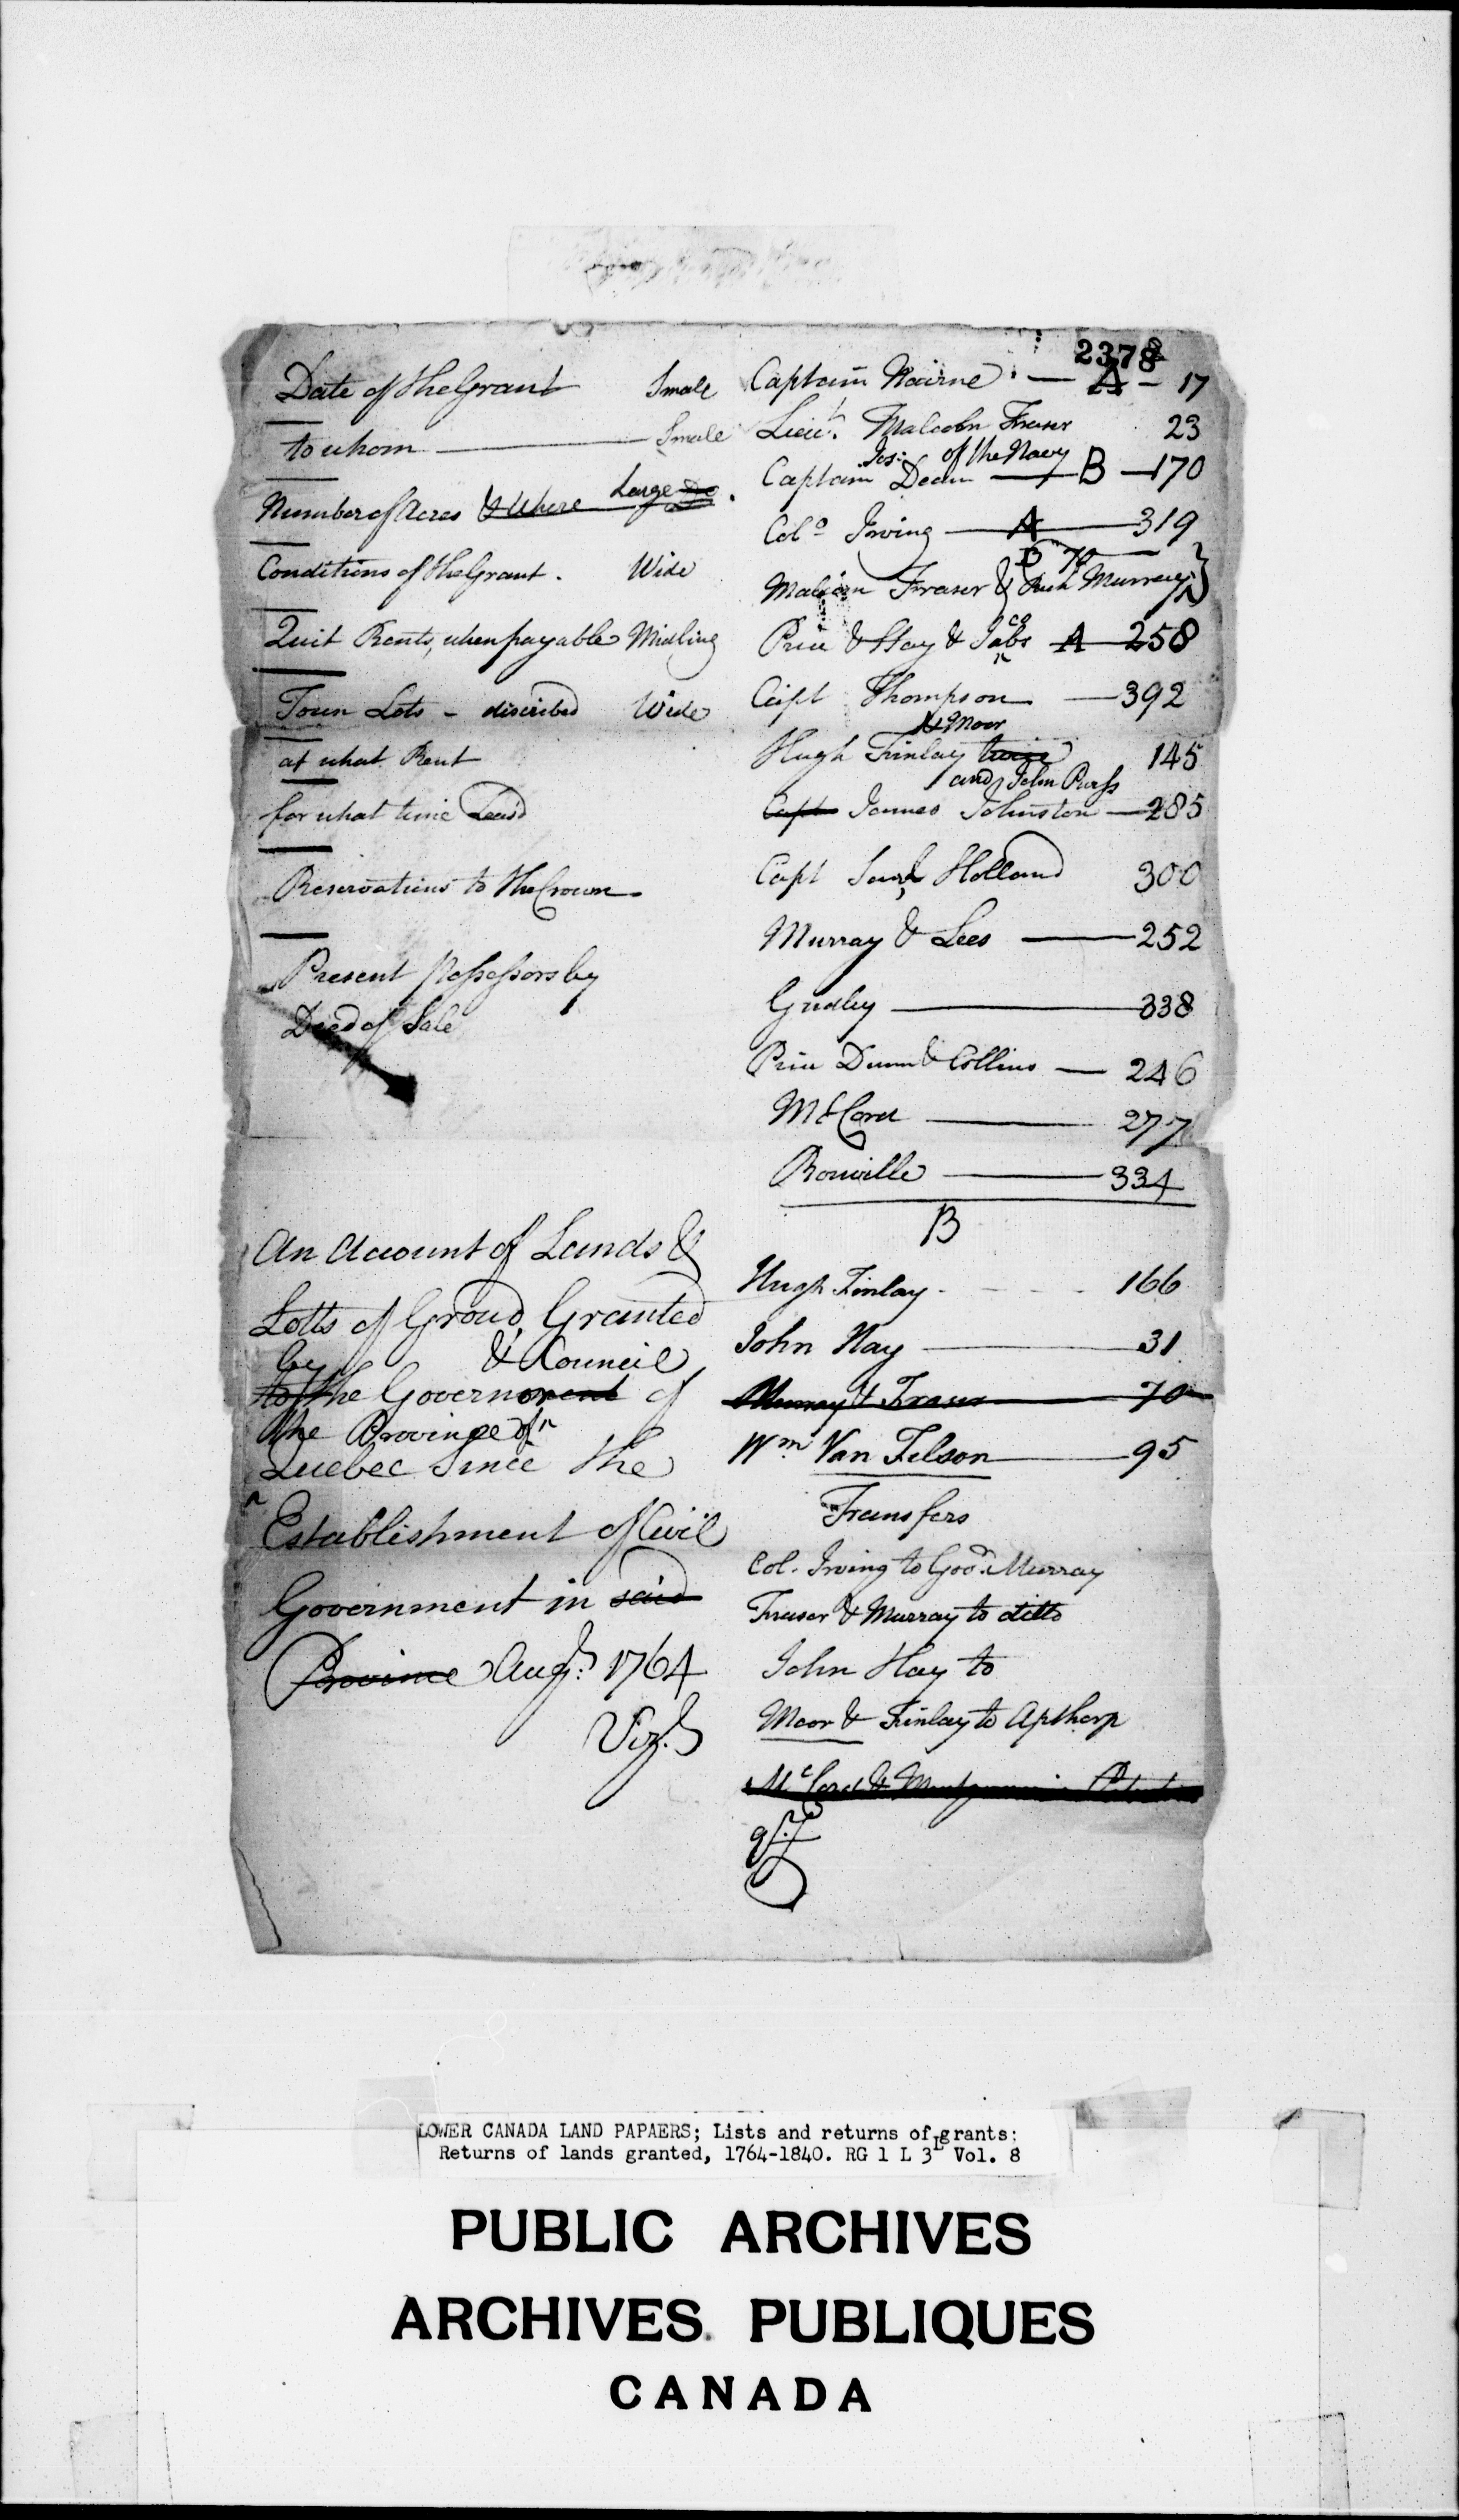 2378
Date of the Grant Small
to whom Small
Number of Acres & Where Large Do.
Conditions of the Grant. Wide
Quit Rents, when payable Midling
Town Lots - discribed Wide
at what Rent
for what time Leas'd
Reservations to the Crown
Present Possessors by
Deed of Sale
An Account of Lands &
Lotts of Groud, Granted
by & Council
to the Government of
the Province of
Quebec Since the
Establishment of Civil
Government in said
Province Augt. 1764
Vizt.
Captain Nairne A 17
Lieut. Malcolm Fraser 23
Jos: of the Navy
Captain Dean B 170
Colo Irving A 319
B 70
Malcom Fraser & Rich Murray
Price & Hay & Jacobs A 258
Capt Thompson 392
& Moor
Hugh Finlay 145
and John Purss
Capt James Johnston 285
Capt Saml Holland 300
Murray & Lees 252
Gridley 338
Price Dunn & Collins 246
McCord 277
Rouville 334
B
Hugh Finlay 166
John Hay 31
Murray & Fraser 70
Wm Van Felson 95
Transfers
Col. Irving to Govr. Murray
Fraser & Murray to ditto
John Hay to
Moor & Finlay to Apthorp
McCord &
LOWER CANADA LAND PAPAERS; Lists and returns of grants:
Returns of lands granted, 1764-1840. RG 1 L 3L Vol. 8
PUBLIC ARCHIVES
ARCHIVES PUBLIQUES
CANADA